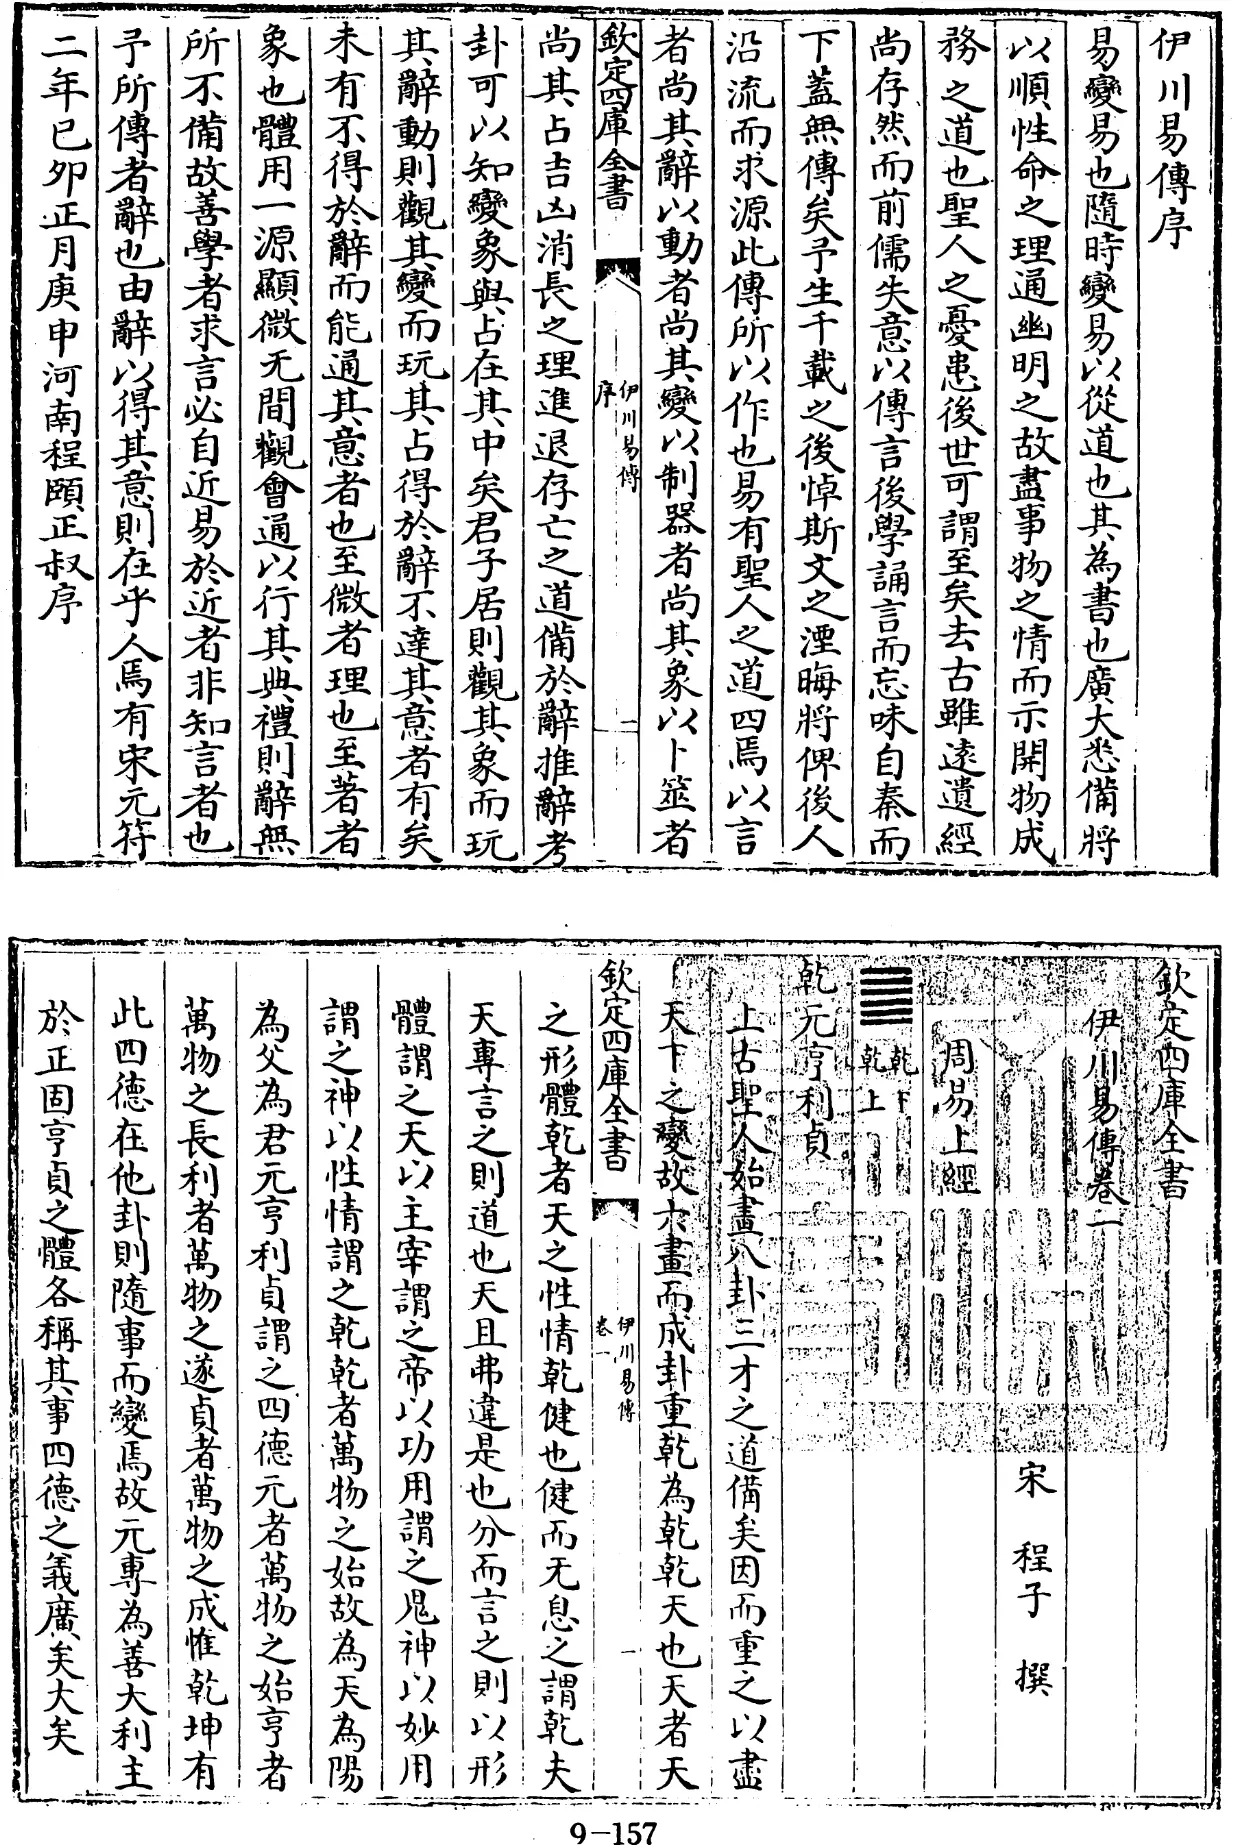 伊川易傳序
易變易也隨時變易以從道也其為書也廣大悉備將
以順性命之理通幽明之故盡事物之情而示開物成
務之道也聖人之憂患後世可謂至矣去古雖逺遺經
尚存然而前儒失意以傳言後學誦言而忘味自秦而
下葢無傳矣予生千載之後悼斯文之湮晦將俾後人
沿流而求源此傳所以作也易有聖人之道四焉以言
者尚其辭以動者尚其變以制器者尚其象以卜筮者
欽定四庫全書
伊川易傳
序
二
尚其占吉凶消長之理進退存亡之道備於辭推辭考
卦可以知變象與占在其中矣君子居則觀其象而玩
其辭動則觀其變而玩其占得於辭不達其意者有矣
未有不得於辭而能通其意者也至微者理也至著者
象也體用一源顯微无間觀會通以行其典禮則辭無
所不備故善學者求言必自近易於近者非知言者也
予所傳者辭也由辭以得其意則在乎人焉有宋元符
二年已夘正月庚申河南程頤正叔序
欽定四庫全書
伊川易傳卷一
宋 程子 撰
周易上經
乾下
乾上
乾元亨利貞
上古聖人始畫八卦三才之道備矣因而重之以盡
天下之變故六畫而成卦重乾為乾乾天也天者天
欽定四庫全書
伊川易傳
卷一
一
之形體乾者天之性情乾健也健而无息之謂乾夫
天專言之則道也天且弗違是也分而言之則以形
體謂之天以主宰謂之帝以功用謂之鬼神以妙用
謂之神以性情謂之乾乾者萬物之始故為天為陽
為父為君元亨利貞謂之四德元者萬物之始亨者
萬物之長利者萬物之遂貞者萬物之成惟乾坤有
此四德在他卦則隨事而變焉故元專為善大利主
於正固亨貞之體各稱其事四德之義廣矣大矣
9-157